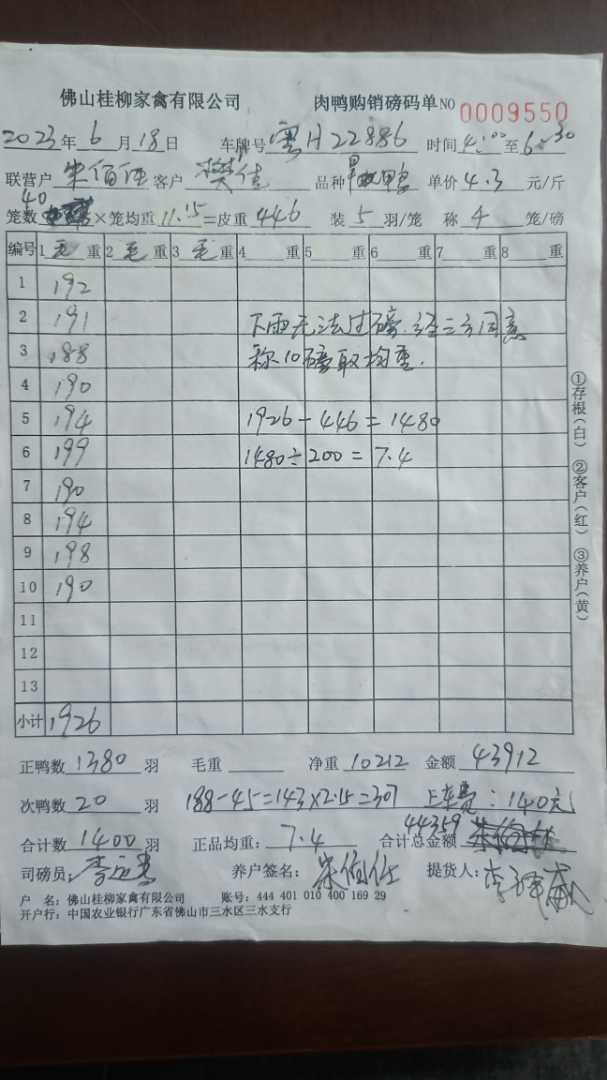 佛山桂柳家禽有限公司 肉鸭购销磅码单 NO 0009550
2023年6月18日 车牌号 粤H22886 时间 4:00 至 6:30
联营户 客户 樊佳 品种 鸭 单价 4.3 元/斤
40
笼数 ×笼均重 11.15 =皮重 446 装 5 羽/笼 称 4 笼/磅
编号 1 毛 重 2 毛 重 3 毛 重 4 重 5 重 6 重 7 重 8 重
1 192
2 191 下雨无法过磅.经三方同意
3 188 称10磅取均重.
4 190
5 194 1926-446=1480
6 199 1480÷200=7.4
7 190
8 194
9 198
10 190
11
12
13
小计 1926
①存根(白) ②客户(红) ③养户(黄)
正鸭数 1380 羽 毛重 净重 10212 金额 43912
次鸭数 20 羽 188-45=143×2.15=307 上车费:140元
合计数 1400 羽 正品均重: 7.4 合计总金额 44359
司磅员: 养户签名: 提货人:
户 名:佛山桂柳家禽有限公司 账号:444 401 010 400 169 29
开户行:中国农业银行广东省佛山市三水区三水支行